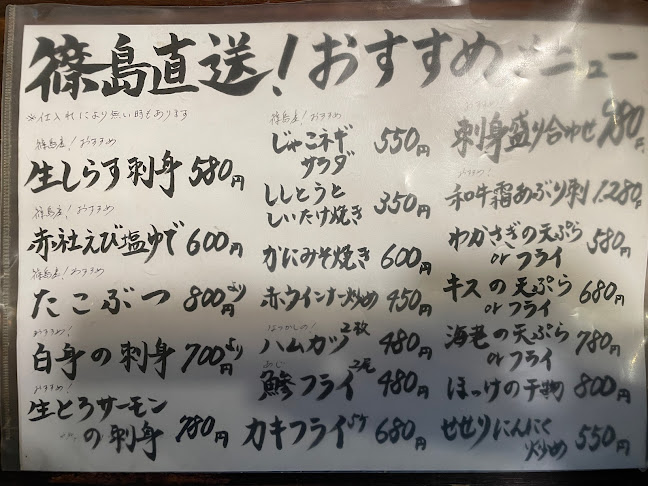 篠島直送!おすすめメニュー
※仕入れにより無い時もあります
篠島産!おすすめ
生しらす刺身 580円
篠島産!おすすめ
赤社えび塩ゆで 600円
篠島産!おすすめ
たこぶつ 800円より
おすすめ!
白身の刺身 700円より
おすすめ!
生とろサーモン
の刺身 780円
篠島産!おすすめ
じゃこネギ
サラダ 550円
ししとうと
しいたけ焼き 350円
かにみそ焼き 600円
赤ウインナー炒め 450円
なつかしの!
ハムカツ 2枚 480円
あじ
鯵フライ 2尾 480円
カキフライ 5ケ 680円
おすすめ!
刺身盛り合わせ 980円
おすすめ!
和牛霜あぶり刺 1,280円
わかさぎの天ぷら
orフライ 580円
キスの天ぷら
orフライ 680円
海老の天ぷら
orフライ 780円
ほっけの干物 800円
せせりにんにく
炒め 550円